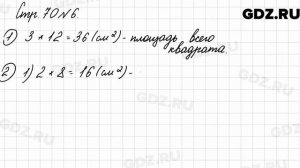 GDZ.RU
Стр. 70 № 6.
1) 3 × 12 = 36 (см²) - площадь всего
квадрата.
2) 1) 2 × 8 = 16 (см²) -